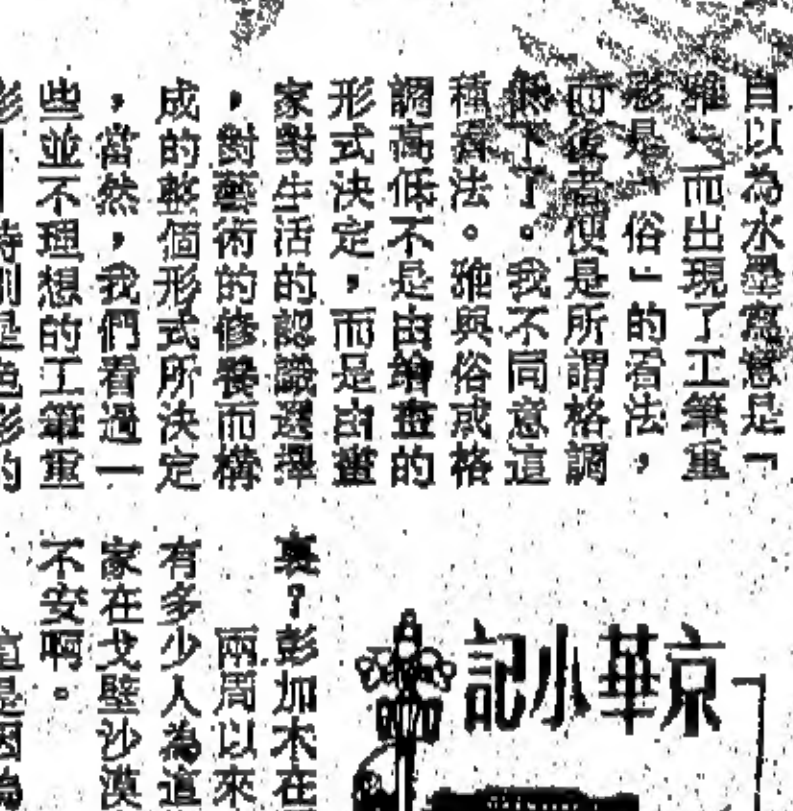 自以為水墨寫意是「
雅」而出現了工筆重
彩是「俗」的看法，
而後者便是所謂格調
低下了。我不同意這
種看法。雅與俗或格
調高低不是由繪畫的
形式決定，而是由畫
家對生活的認識選擇
，對藝術的修養而構
成的整個形式所決定
，當然，我們看過一
些並不理想的工筆重
特別是色彩的
京華小記
裏？彭加木在
兩周以來
有多少人為這
家在戈壁沙漠
不安啊。
是因為